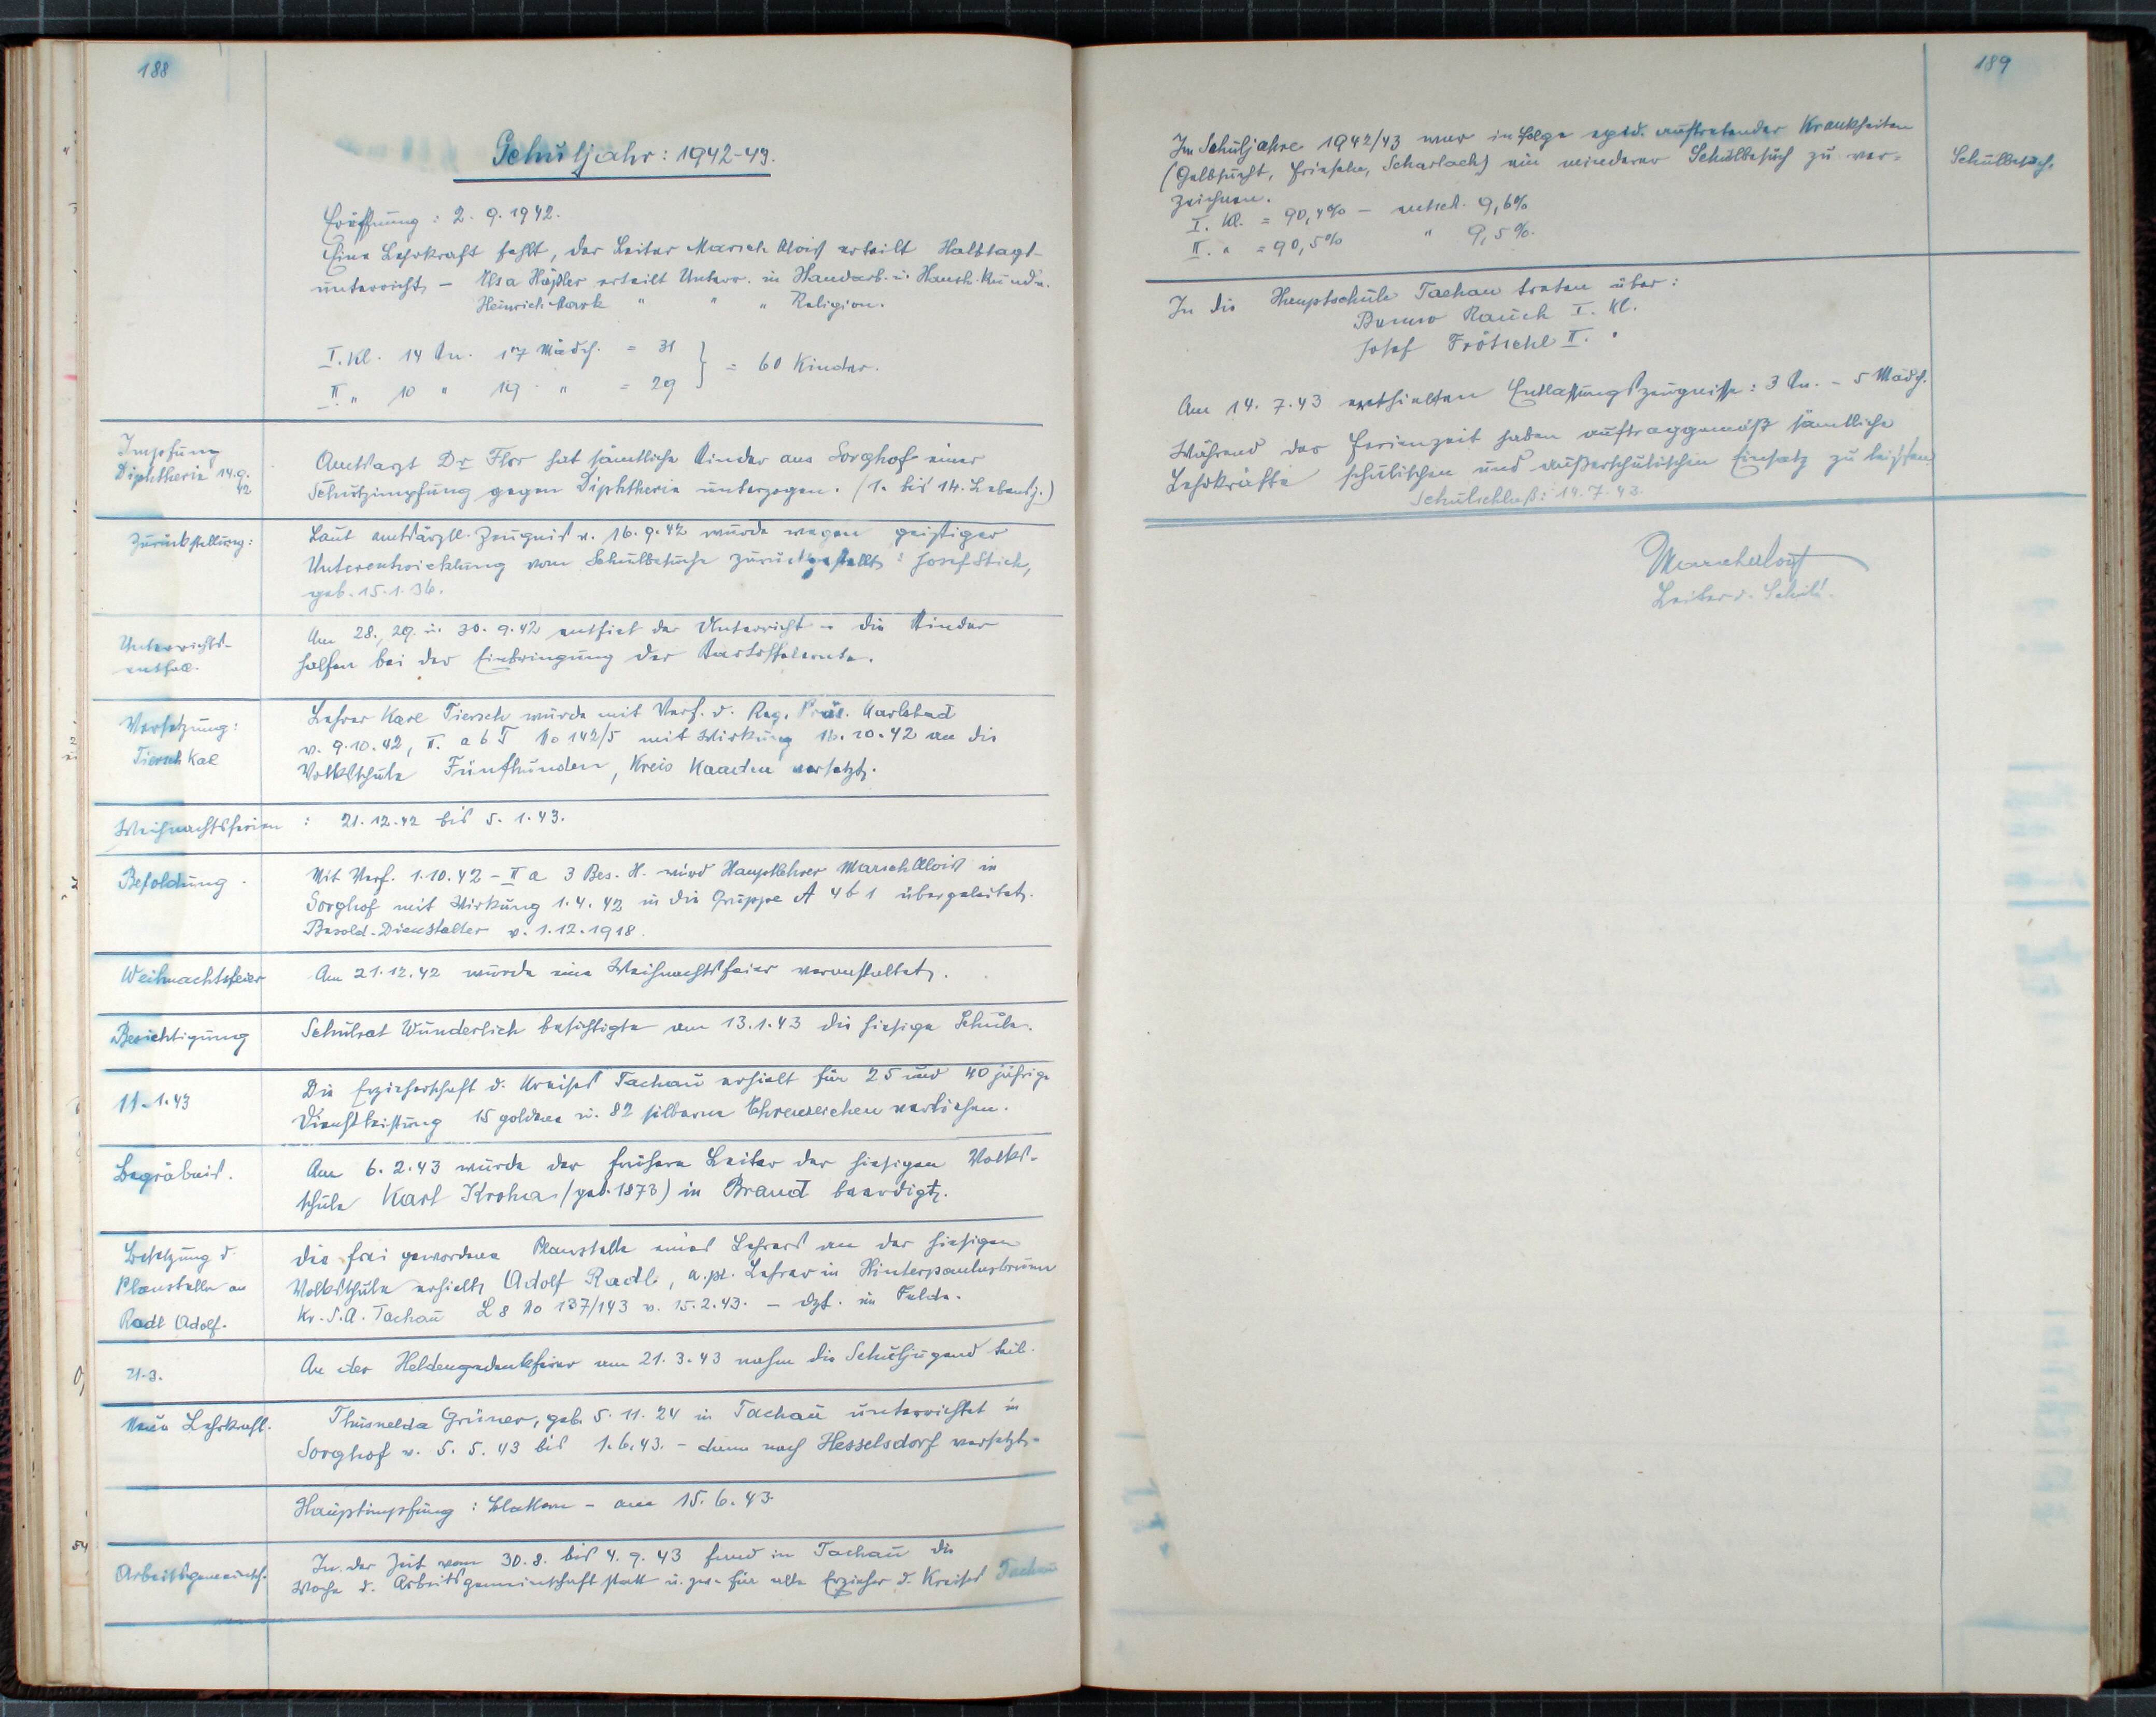 188
Schuljahr: 1942-43.
Eröffnung: 2. 9. 1942.
Eine Lehrkraft fehlt, der Leiter Marsch Alois erteilt Halbtags-
unterricht, – Elsa Häßler erteilt Unterr. in Handarb. u. Haush. Kunde.
Heinrich " " " Religion.
I. Kl. 14 Kn. 17 Mädch. = 31
II. " 10 " 19 " = 29 } = 60 Kinder.
Impfung
Diphtherie 14.9.
42
Amtsarzt Dr Flor hat sämtliche Kinder aus Sorghof einer
Schutzimpfung gegen Diphtherie unterzogen. (1. bis 14. Lebensj.)
Zurückstellung:
Laut amtsärztl. Zeugnis v. 16.9.42 wurde wegen geistiger
Unterentwicklung vom Schulbesuche zurückgestellt: Josef Stich,
geb. 15.1.36.
Unterrichts-
entfall.
Am 28., 29. u. 30. 9.42 entfiel der Unterricht – die Kinder
halfen bei der Einbringung der Kartoffelernte.
Versetzung:
Tiersch Kal
Lehrer Karl Tiersch wurde mit Verf. d. Reg. Präs. Karlsbad
v. 9.10.42, II. a 6 T No 142/5 mit Wirkung 16.10.42 an die
Volksschule Fünfhunden, Kreis Kaaden versetzt.
Weihnachtsferien : 21.12.42 bis 5. 1.43.
Besoldung.
Mit Verf. 1.10.42 – II a 3 Bes. H. wird Hauptlehrer Marsch Alois in
Sorghof mit Wirkung 1.4.42 in die Gruppe A 4 b 1 übergeleitet.
Besold.-Dienstalter v. 1.12.1918.
Weihnachtsfeier
Am 21.12.42 wurde eine Weihnachtsfeier veranstaltet.
Besichtigung
Schulrat Wunderlich besichtigte am 13.1.43 die hiesige Schule.
11.1.43
Die Erzieherschaft d. Kreises Tachau erhielt für 25 und 40 jährige
Dienstleistung 15 goldene u. 82 silberne Ehrenzeichen verliehen.
Begräbnis.
Am 6.2.43 wurde der frühere Leiter der hiesigen Volks-
schule Karl Kroha (geb. 1873) in Brand beerdigt.
Besetzung d.
Planstelle an
Radl Adolf.
Die frei gewordene Planstelle eines Lehrers an der hiesigen
Volksschule erhielt Adolf Radl, a.pl. Lehrer in Hinterpaulusbrunn
Kr. S.A. Tachau L 8 No 137/143 v. 15.2.43. – dzt. im Felde.
21.3.
An der Heldengedenkfeier am 21.3.43 nahm die Schuljugend teil.
Neue Lehrkraft.
Thusnelda Grüner, geb. 5.11.24 in Tachau unterrichtet in
Sorghof v. 5.5.43 bis 1.6.43. – dann nach Hesselsdorf versetzt.
Hauptimpfung: Blattern – am 15.6.43.
Arbeitsgemeinsch.
In der Zeit vom 30.8. bis 4.9.43 fand in Tachau die
Woche d. Arbeitsgemeinschaft statt u. zw. für alle Erzieher d. Kreises Tachau
189
Schulbesuch.
Im Schuljahre 1942/43 war infolge epid. auftretender Krankheiten
(Gelbsucht, Frieseln, Scharlach) ein minderer Schulbesuch zu ver=
zeichnen.
I. Kl. = 90,4% – entsch. 9,6%
II. " = 90,5% " 9,5%.
In die Hauptschule Tachau traten über:
Benno Rauch I. Kl.
Josef Frötschl II. "
Am 14.7.43 erhielten Entlassungszeugnisse: 3 Kn. – 5 Mädch.
Während der Ferienzeit haben auftraggemäß sämtliche
Lehrkräfte schulischen und außerschulischen Einsatz zu leisten.
Schulschluß: 14.7.43.
Marsch Alois
Leiter d. Schule.